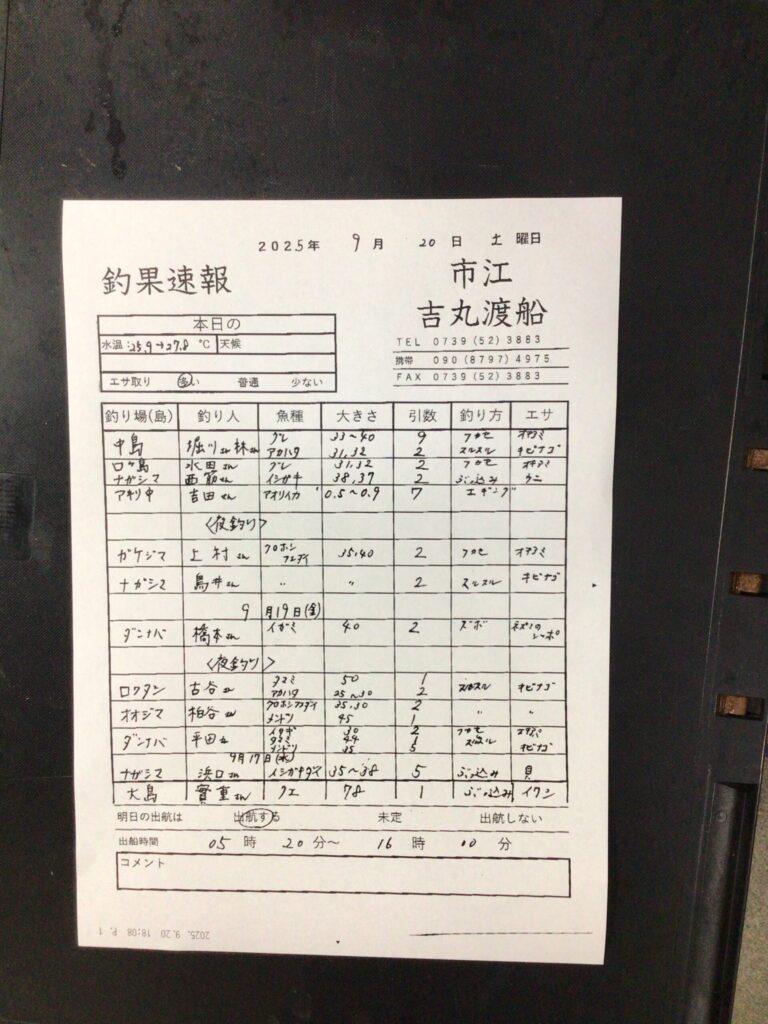 2025年 9月 20日 土曜日
釣果速報
市江
吉丸渡船
TEL 0739(52)3883
携帯 090(8797)4975
FAX 0739(52)3883
本日の
水温:25.9→27.8 ℃ 天候
エサ取り 多い 普通 少ない
釣り場(島) 釣り人 魚種 大きさ 引数 釣り方 エサ
中島 堀川さん林さん グレ 33〜40 9 フカセ オキアミ
アカハタ 31,32 2 スルスル キビナゴ
ロク島 水田さん グレ 31,32 2 フカセ オキアミ
ナガシマ 西筋さん イシガキ 38,37 2 ぶっ込み ウニ
アキリ中 吉田さん アオリイカ 0.5〜0.9 7 エギング
<夜釣り>
ガケジマ 上村さん クロホシフエダイ 35,40 2 フカセ オキアミ
ナガシマ 鳥井さん 〃 〃 2 スルスル キビナゴ
9月19日(金)
ダンナバ 橋本さん イガミ 40 2 ズボ ネズミのシッポ
<夜釣り>
ロクタン 古谷さん タマミ 50 1
アカハタ 25〜30 2 スルスル キビナゴ
オオジマ 柏谷さん クロホシフエダイ 35,30 2
メンドリ 45 1 〃 〃
ダンナバ 平田さん イサギ 30 2 フカセ オキアミ
タマミ 44 1 スルスル キビナゴ
メンドリ 35 5
9月17日(水)
ナガシマ 浜口さん イシガキダイ 35〜38 5 ぶっ込み 貝
大島 實重さん クエ 78 1 ぶっ込み イワシ
明日の出航は 出航する 未定 出航しない
出船時間 05時 20分〜 16時 00分
コメント
2025. 9.20 18:08 P. 1